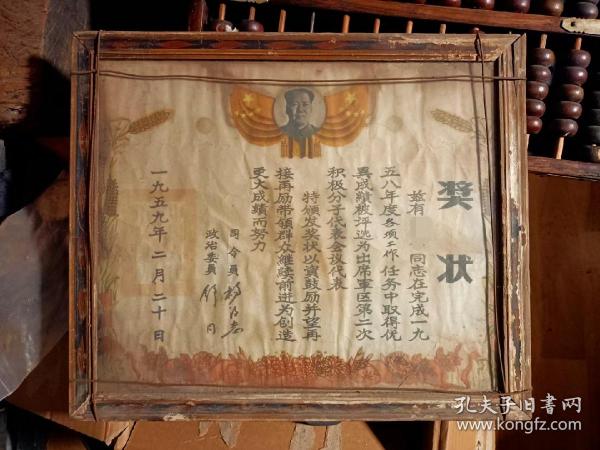 奖状
兹有 同志在完成一九
五八年度各项工作任务中取得优
異成績被評选为出席軍区第二次
积极分子代表会议代表
特颁发奖状以資鼓励并望再
接再励带領群众継续前进为创造
更大成績而努力
司令員
政治委員
一九五九年二月二十日
孔夫子旧書网
www.kongfz.com